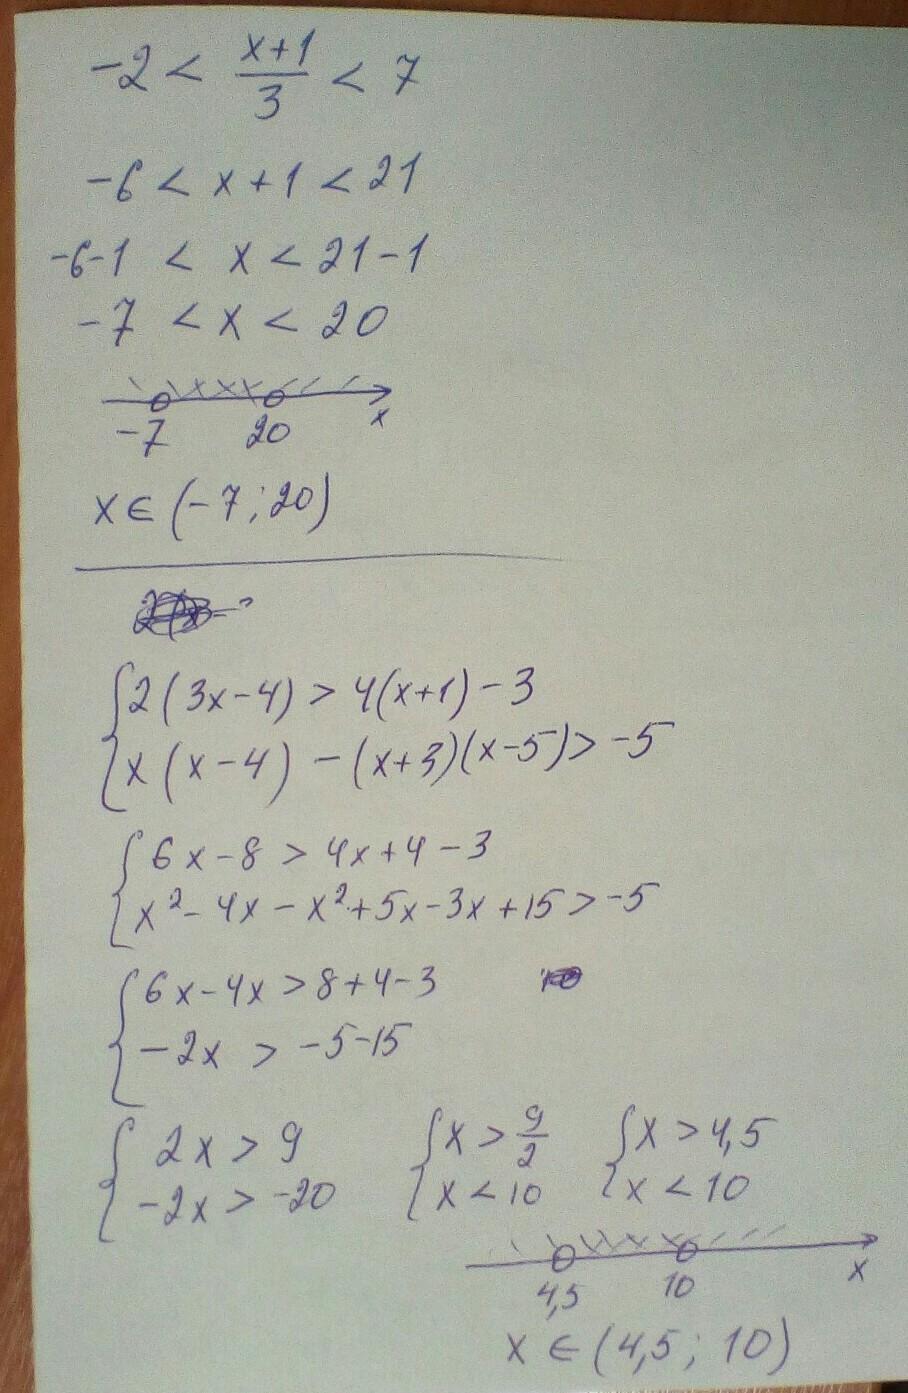 -2 < (x+1)/3 < 7
-6 < x+1 < 21
-6-1 < x < 21-1
-7 < x < 20
-7 20 x
x ∈ (-7; 20)
{ 2(3x-4) > 4(x+1)-3
x(x-4) - (x+3)(x-5) > -5
{ 6x-8 > 4x+4-3
x²-4x-x²+5x-3x+15 > -5
{ 6x-4x > 8+4-3
-2x > -5-15
{ 2x > 9 { x > 9/2 { x > 4,5
-2x > -20 x < 10 x < 10
4,5 10 x
x ∈ (4,5; 10)